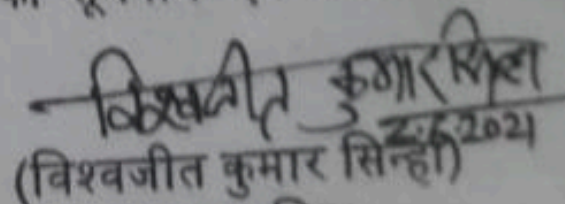 विश्वजीत कुमार सिन्हा
2.6.2021
(विश्वजीत कुमार सिन्हा)